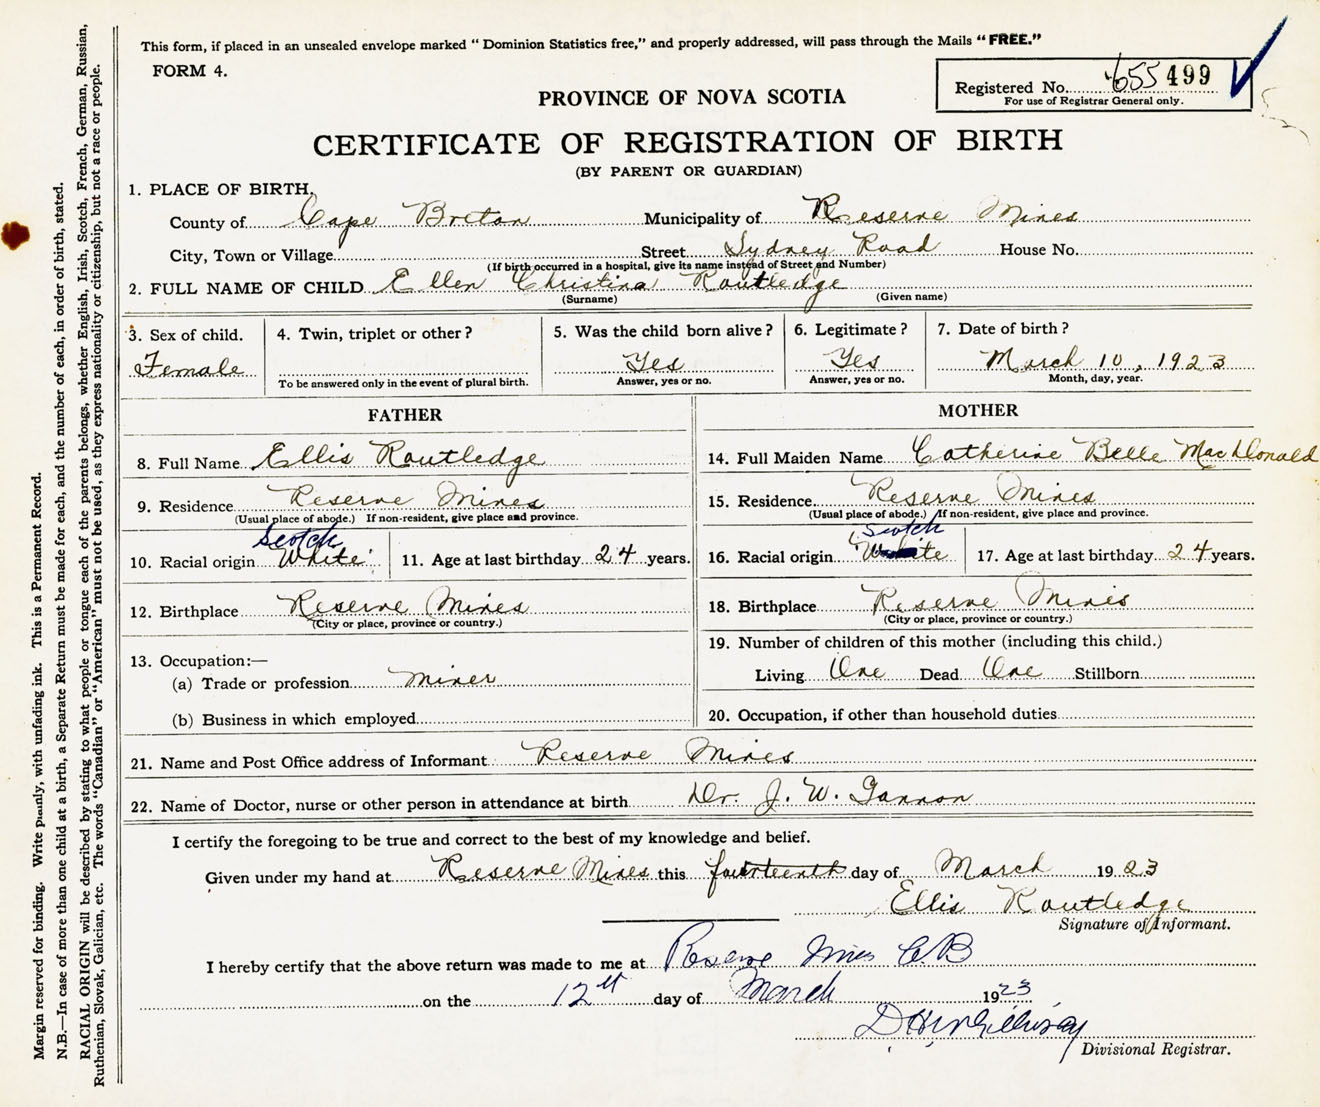 This form, if placed in an unsealed envelope marked "Dominion Statistics free," and properly addressed, will pass through the Mails "FREE."
FORM 4.
Registered No. 655 499
For use of Registrar General only.
PROVINCE OF NOVA SCOTIA
CERTIFICATE OF REGISTRATION OF BIRTH
(BY PARENT OR GUARDIAN)
1. PLACE OF BIRTH,
County of Cape Breton Municipality of Reserve Mines
City, Town or Village Street Sydney Road House No.
(If birth occurred in a hospital, give its name instead of Street and Number)
2. FULL NAME OF CHILD Ellen Christina Routledge
(Surname) (Given name)
3. Sex of child. 4. Twin, triplet or other? 5. Was the child born alive? 6. Legitimate? 7. Date of birth?
Female Yes Yes March 10, 1923
To be answered only in the event of plural birth. Answer, yes or no. Answer, yes or no. Month, day, year.
FATHER MOTHER
8. Full Name Ellis Routledge 14. Full Maiden Name Catherine Belle MacDonald
9. Residence Reserve Mines 15. Residence Reserve Mines
(Usual place of abode.) If non-resident, give place and province. (Usual place of abode.) If non-resident, give place and province.
Scotch Scotch
10. Racial origin White 11. Age at last birthday 24 years. 16. Racial origin White 17. Age at last birthday 24 years.
12. Birthplace Reserve Mines 18. Birthplace Reserve Mines
(City or place, province or country.) (City or place, province or country.)
19. Number of children of this mother (including this child.)
13. Occupation:—
(a) Trade or profession miner Living One Dead One Stillborn
(b) Business in which employed 20. Occupation, if other than household duties
21. Name and Post Office address of Informant Reserve Mines
22. Name of Doctor, nurse or other person in attendance at birth Dr. J. W. Gannon
I certify the foregoing to be true and correct to the best of my knowledge and belief.
Given under my hand at Reserve Mines this fourteenth day of March 1923
Ellis Routledge
Signature of Informant.
I hereby certify that the above return was made to me at Reserve Mines C.B
on the 12th day of March 1923
Divisional Registrar.
Margin reserved for binding. Write plainly, with unfading ink. This is a Permanent Record.
N.B.—In case of more than one child at a birth, a Separate Return must be made for each, and the number of each, in order of birth, stated.
RACIAL ORIGIN will be described by stating to what people or tongue each of the parents belongs, whether English, Irish, Scotch, French, German, Russian,
Ruthenian, Slovak, Galician, etc. The words "Canadian" or "American" must not be used, as they express nationality or citizenship, but not a race or people.